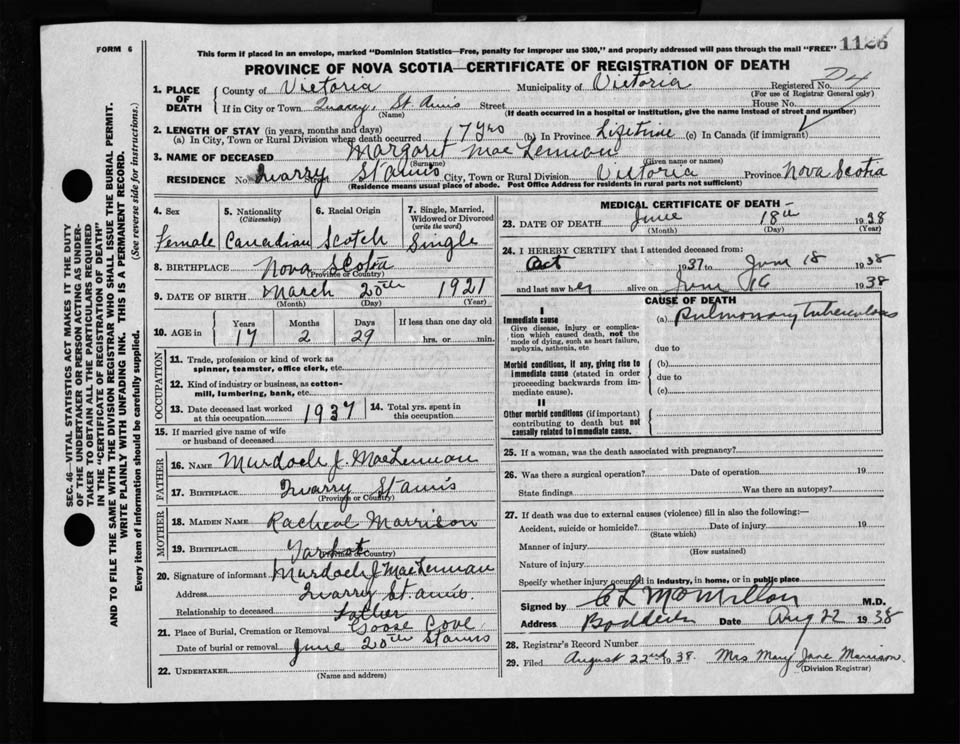 FORM 6
This form if placed in an envelope, marked "Dominion Statistics—Free, penalty for improper use $300," and properly addressed will pass through the mail "FREE"
1126
PROVINCE OF NOVA SCOTIA—CERTIFICATE OF REGISTRATION OF DEATH
1. PLACE OF DEATH
County of Victoria Municipality of Victoria Registered No.
(For use of Registrar General only)
If in City or Town Quarry, St. Anns Street House No.
(Name) (If death occurred in a hospital or institution, give the name instead of street and number)
2. LENGTH OF STAY (in years, months and days)
(a) In City, Town or Rural Division where death occurred 17 yrs (b) In Province Lifetime (c) In Canada (if immigrant)
3. NAME OF DECEASED Margaret MacLennan
(Surname) (Given name or names)
RESIDENCE No. Quarry Street St Anns City, Town or Rural Division Victoria Province Nova Scotia
(Residence means usual place of abode. Post Office Address for residents in rural parts not sufficient)
4. Sex
Female
5. Nationality
(Citizenship)
Canadian
6. Racial Origin
Scotch
7. Single, Married, Widowed or Divorced
(write the word)
Single
8. BIRTHPLACE Nova Scotia
(Province or Country)
9. DATE OF BIRTH March 20th 1921
(Month) (Day) (Year)
10. AGE in
Years Months Days If less than one day old
17 2 29 hrs. or min.
OCCUPATION
11. Trade, profession or kind of work as
spinner, teamster, office clerk, etc.
12. Kind of industry or business, as cotton-
mill, lumbering, bank, etc.
13. Date deceased last worked
at this occupation 1937
14. Total yrs. spent in
this occupation
15. If married give name of wife
or husband of deceased
FATHER
16. NAME Murdoch J. MacLennan
17. BIRTHPLACE Quarry St Anns
(Province or Country)
MOTHER
18. MAIDEN NAME Racheal Morrison
19. BIRTHPLACE Tarbot
(Province or Country)
20. Signature of informant Murdoch J MacLennan
Address Quarry St. Anns.
Relationship to deceased Father
21. Place of Burial, Cremation or Removal Goose Cove
Date of burial or removal June 20th St Anns
22. UNDERTAKER
(Name and address)
MEDICAL CERTIFICATE OF DEATH
23. DATE OF DEATH June 18th 1938
(Month) (Day) (Year)
24. I HEREBY CERTIFY that I attended deceased from:
Oct 1937 to June 18 1938
and last saw her alive on June 16 1938
CAUSE OF DEATH
I
Immediate cause
Give disease, injury or complica-
tion which caused death, not the
mode of dying, such as heart failure,
asphyxia, asthenia, etc
(a) Pulmonary Tuberculosis
due to
Morbid conditions, if any, giving rise to
immediate cause (stated in order
proceeding backwards from im-
mediate cause).
(b)
due to
(c)
II
Other morbid conditions (if important)
contributing to death but not
causally related to immediate cause.
25. If a woman, was the death associated with pregnancy?
26. Was there a surgical operation? Date of operation 19
State findings Was there an autopsy?
27. If death was due to external causes (violence) fill in also the following:—
Accident, suicide or homicide? Date of injury 19
(State which)
Manner of injury
(How sustained)
Nature of injury
Specify whether injury occurred in industry, in home, or in public place
Signed by C L MacMillan M.D.
Address Baddeck Date Aug 22 1938
28. Registrar's Record Number
29. Filed August 22nd 1938. Mrs Mary Jane Morrison.
(Division Registrar)
SEC. 46—VITAL STATISTICS ACT MAKES IT THE DUTY
OF THE UNDERTAKER OR PERSON ACTING AS UNDER-
TAKER TO OBTAIN ALL THE PARTICULARS REQUIRED
IN THE "CERTIFICATE OF REGISTRATION OF DEATH"
AND TO FILE THE SAME WITH THE DIVISION REGISTRAR WHO SHALL ISSUE THE BURIAL PERMIT.
WRITE PLAINLY WITH UNFADING INK. THIS IS A PERMANENT RECORD.
Every item of information should be carefully supplied. (See reverse side for instructions.)